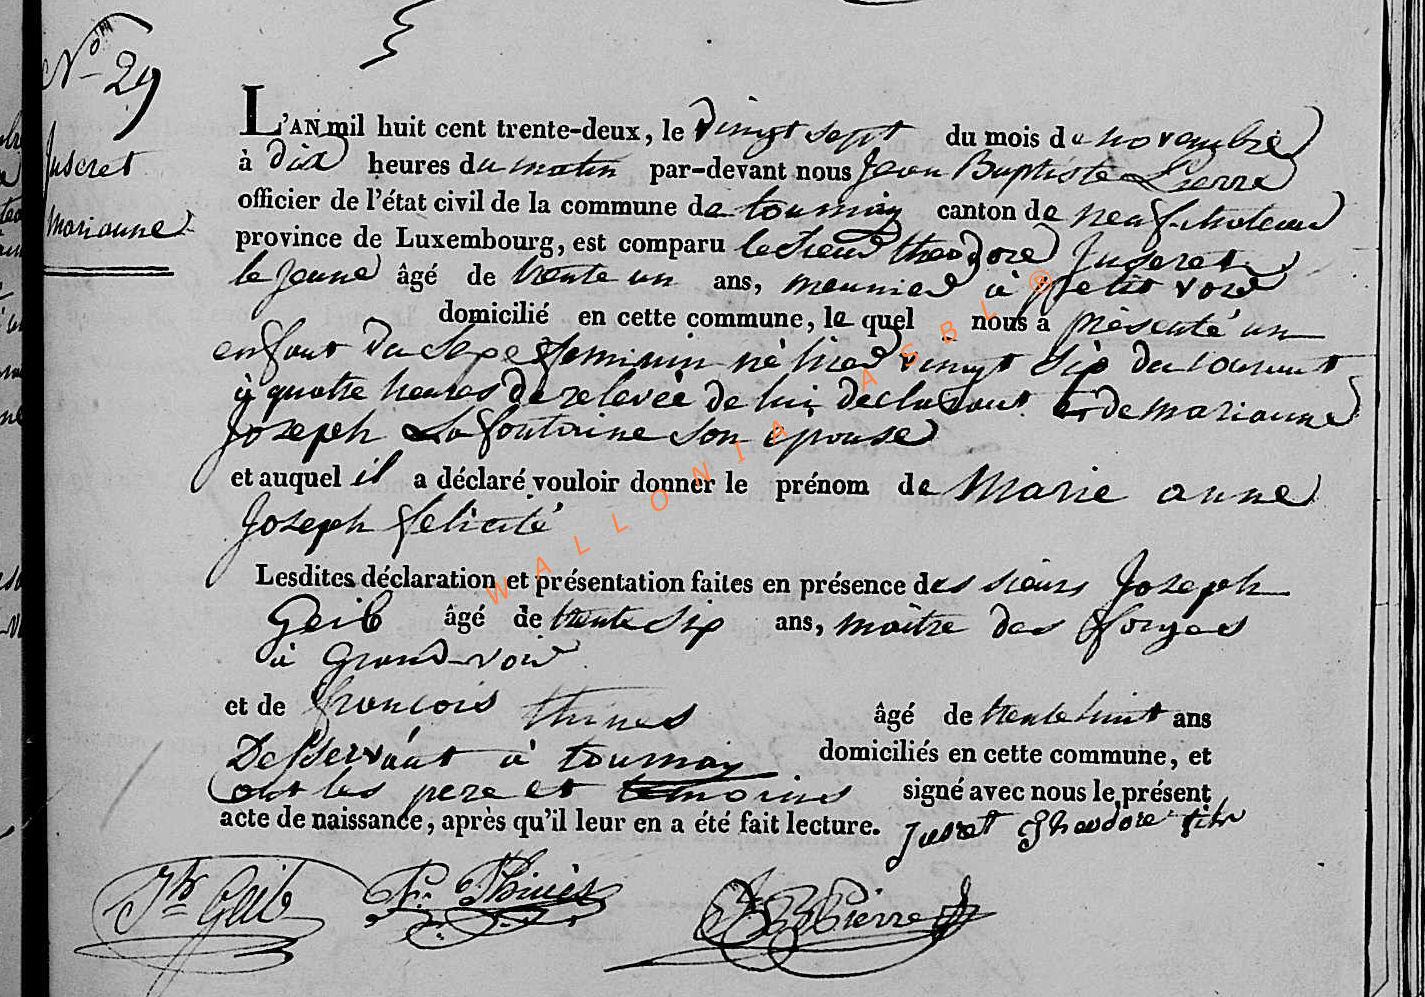 N° 29
Juseret
marianne
L'AN mil huit cent trente-deux, le vingt sept du mois de novembre
à dix heures du matin par-devant nous Jean Baptiste Pierre
officier de l'état civil de la commune de tournay canton de neufchateau
province de Luxembourg, est comparu le sieur theodore Juseret
le jeune âgé de trente un ans, meunier à petit voir
domicilié en cette commune, le quel nous a présenté un
enfant du sexe feminin né hier vingt six du courant
à quatre heures de relevée de lui déclarant et de marianne
Joseph Lafontaine son épouse
et auquel il a déclaré vouloir donner le prénom de Marie anne
Joseph félicité
Lesdites déclaration et présentation faites en présence des sieurs Joseph
Geib âgé de trente six ans, maître des forges
à Grand-voir
et de françois thines âgé de trente huit ans
Desservant à tournay domiciliés en cette commune, et
ont les pere et temoins signé avec nous le présent
acte de naissance, après qu'il leur en a été fait lecture. Jusret Theodore fils
Jh Geib F. Thinès J B Pierre
WALLONIA ASBL ®